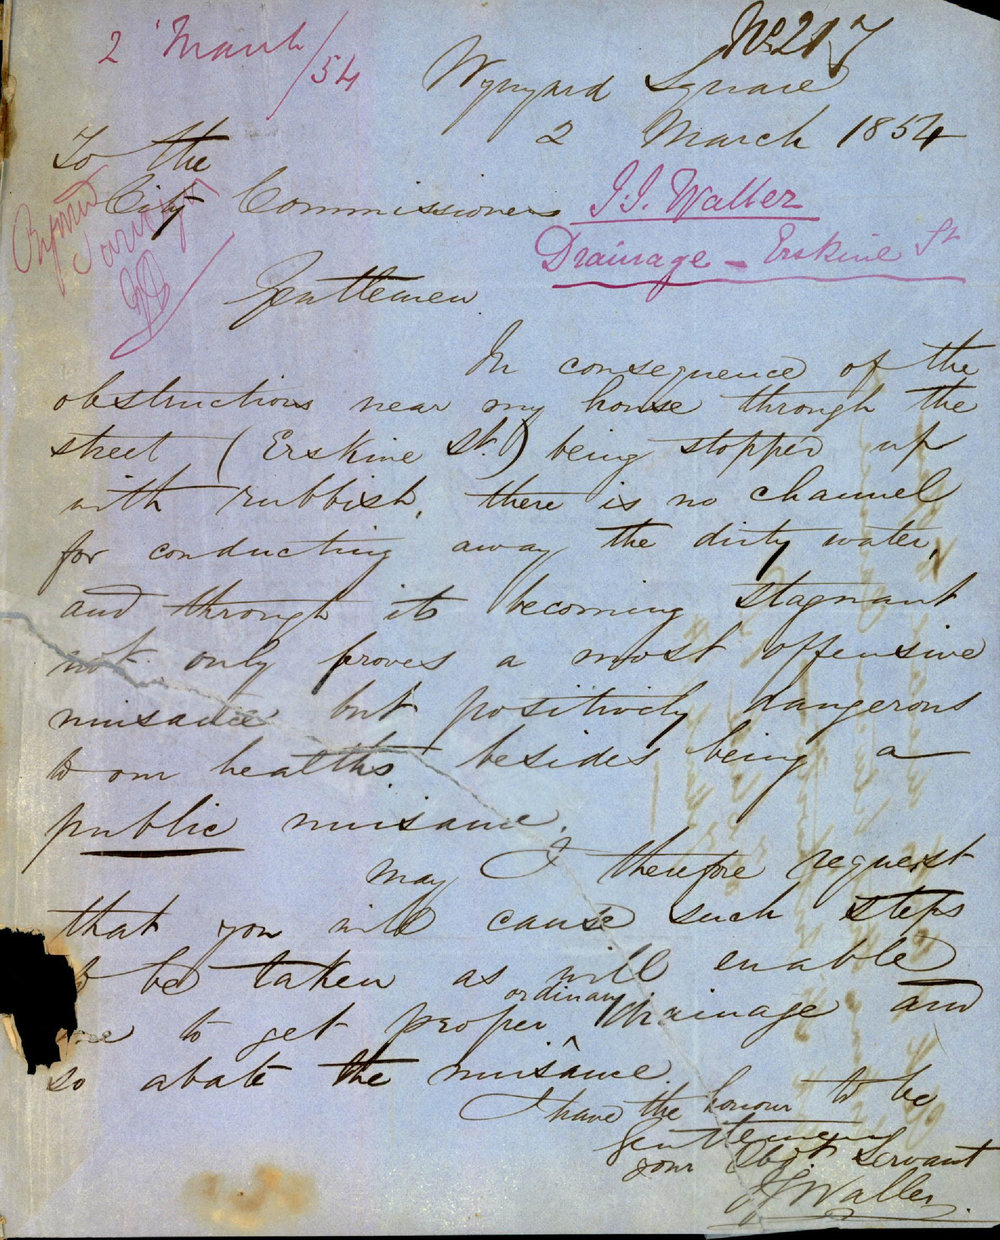 2 March/54
No 217
Wynyard Square
2 March 1854
To the
City Commissioners
J. J. Waller
Drainage - Erskine St
Gentlemen
In consequence of the
obstructions near my house through the
street (Erskine St.) being stopped up
with rubbish, there is no channel
for conducting away the dirty water,
and through its becoming stagnant
not only proves a most offensive
nuisance but positively dangerous
to our healths besides being a
public nuisance.
May I therefore request
that you will cause such steps
to be taken as will enable
me to get proper ordinary drainage and
so abate the nuisance
I have the honour to be
Gentlemen
your Obdt. Servant
JJ Waller.